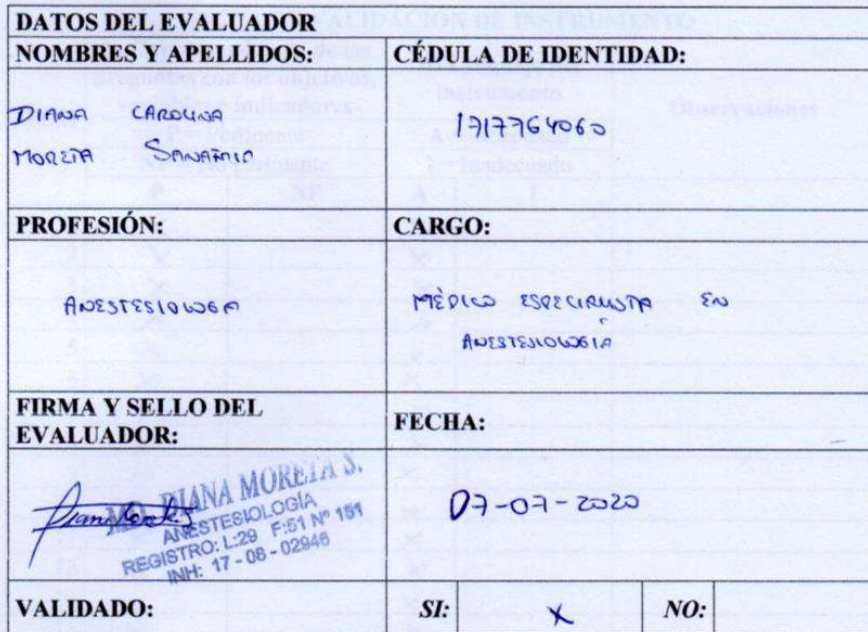 DATOS DEL EVALUADOR
NOMBRES Y APELLIDOS: CÉDULA DE IDENTIDAD:
DIANA CAROLINA
MORETA SANAFRIA
1717764060
PROFESIÓN: CARGO:
ANESTESIOLOGA
MÉDICO ESPECIALISTA EN
ANESTESIOLOGIA
FIRMA Y SELLO DEL
EVALUADOR:
FECHA:
MD. DIANA MORETA S.
ANESTESIOLOGÍA
REGISTRO: L:29 F:51 Nº 151
INH: 17 - 08 - 02946
07-07-2020
VALIDADO: SI: X NO: